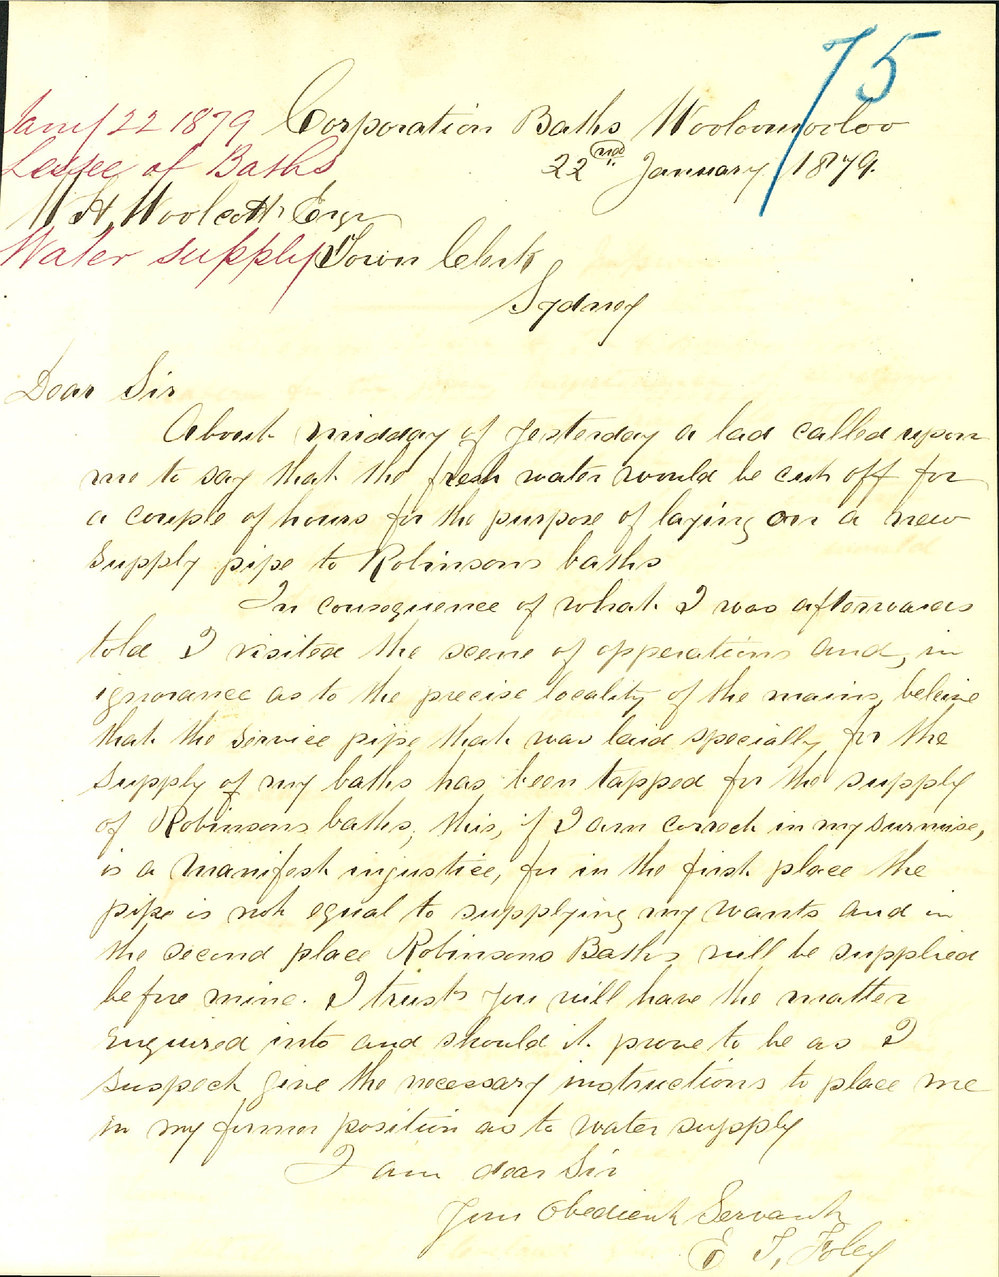 75
Jany 22 1879 Corporation Baths Wooloomooloo
Lessee of Baths 22nd January 1879.
W H, Woolcott Esqr
Water supply Town Clerk
Sydney
Dear Sir
About midday of yesterday a lad called upon
me to say that the fresh water would be cut off for
a couple of hours for the purpose of laying on a new
supply pipe to Robinsons baths
In consequence of what I was afterwards
told I visited the scene of opperations and, in
ignorance as to the precise locality of the mains, beleive
that the service pipe that was laid specially for the
supply of my baths has been tapped for the supply
of Robinsons baths, this, if I am correct in my surmise,
is a manifest injustice, for in the first place the
pipe is not equal to supplying my wants and in
the second place Robinsons Baths will be supplied
before mine. I trust you will have the matter
enquired into and should it prove to be as I
suspect give the necessary instructions to place me
in my former position as to water supply
I am dear Sir
Your Obedient Servant
E T, Foley